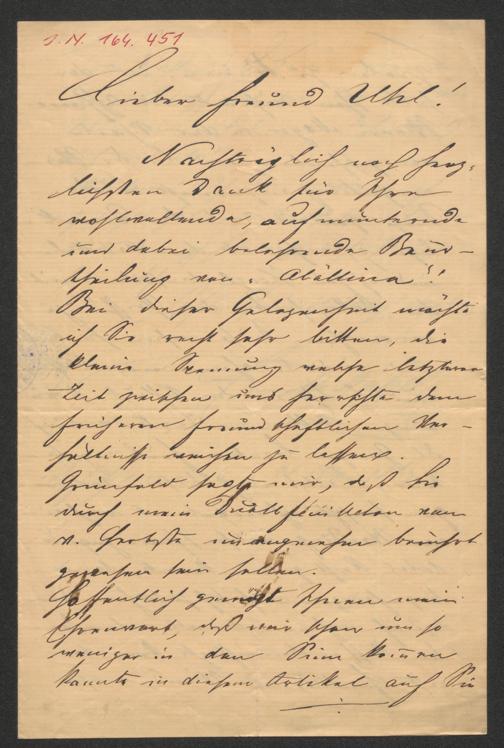 J. N. 164.451
Lieber Freund Uhl!
Nachträglich noch herz-
lichsten Dank für Ihre
wohlwollende, aufmunternde
und dabei belehrende Beur-
theilung von
Bei dieser Gelegenheit möchte
ich Sie recht sehr bitten, die
kleine Spannung welche letzterer
Zeit zwischen uns herrschte dem
früheren freundschaftlichen Ver-
hältnisse weichen zu lassen.
Grünfeld sagte mir, daß Sie
durch mein Feuilleton vom
v. Herbste unangenehm berührt
gewesen sein sollen.
Hoffentlich genügt Ihnen mein
Ehrenwort, daß mir schon um so
weniger in den Sinn kommen
konnte in diesem Artikel auf Sie